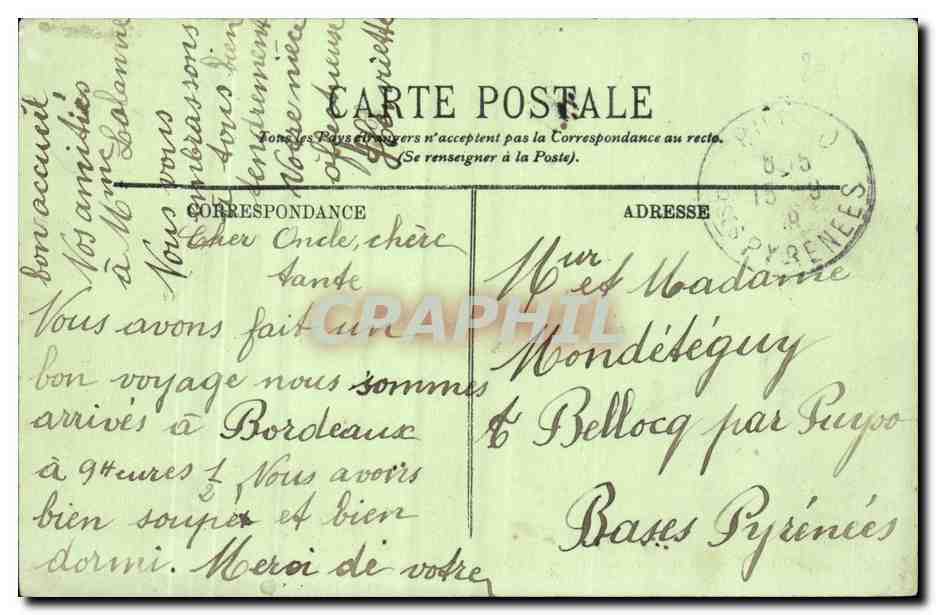 CARTE POSTALE
Tous les Pays étrangers n'acceptent pas la Correspondance au recto.
(Se renseigner à la Poste).
CORRESPONDANCE
Cher Oncle, chère
tante
Nous avons fait un
bon voyage nous sommes
arrivés à Bordeaux
à 9 Heures 1/2 Nous avons
bien soupé et et bien
dormi. Merci de votre
bon accueil
Nos amitiés
à Mme Lalanne
Nous vous
embrassons
tous bien
tendrement
Votre nièce
affectueuse
Gabrielle
ADRESSE
Mur et Madame
Mondétéguy
à Bellocq par Puyoo
Basses Pyrénées
PUYOO
BSES PYRENEES
CRAPHIL